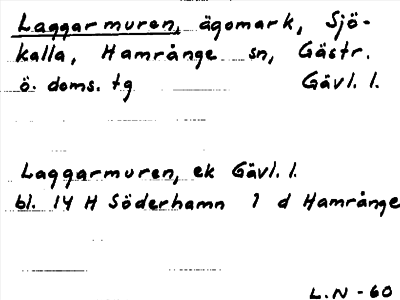 Laggarmuren, ägomark, Sjö-
kalla, Hamrånge sn, Gästr.
ö. doms. tg Gävl. l.
Laggarmuren, ek Gävl. l.
bl. 14 H Söderhamn 1 d Hamrånge
L.N - 60